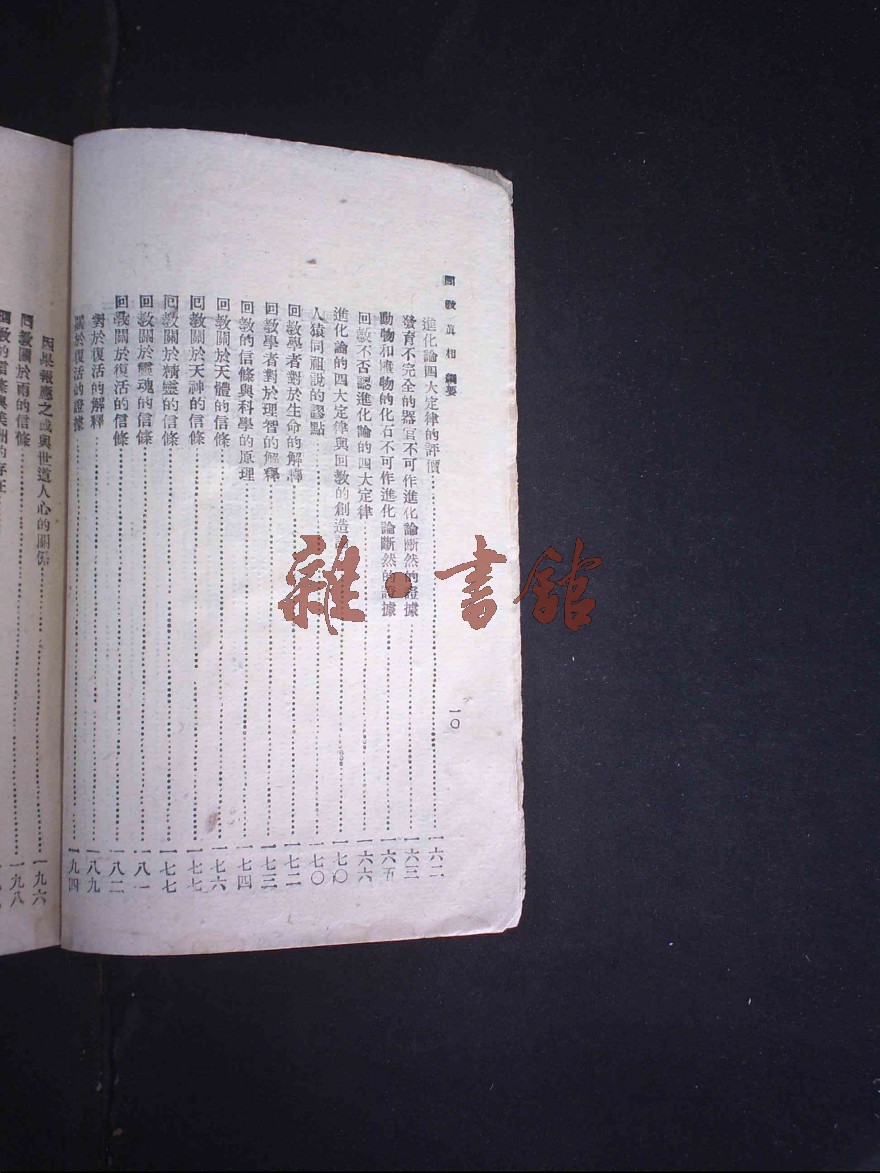 回教真相 綱要
一〇
進化論四大定律的評價⋯⋯一六二
發育不完全的器官不可作進化論斷然的證據⋯⋯一六三
動物和植物的化石不可作進化論斷然的證據⋯⋯一六五
回教不否認進化論的四大定律⋯⋯一六六
進化論的四大定律與回教的創造⋯⋯一七〇
人猿同祖說的謬點⋯⋯一七〇
回教學者對於生命的解釋⋯⋯一七二
回教學者對於理智的解釋⋯⋯一七三
回教的信條與科學的原理⋯⋯一七四
回教關於天體的信條⋯⋯一七六
回教關於天神的信條⋯⋯一七七
回教關於精靈的信條⋯⋯一七七
回教關於靈魂的信條⋯⋯一八一
回教關於復活的信條⋯⋯一八二
對於復活的解釋⋯⋯一八九
關於復活的證據⋯⋯一九四
因果報應之說與世道人心的關係⋯⋯一九六
回教關於雨的信條⋯⋯一九八
回教的信條與美洲的存在
雜·書館